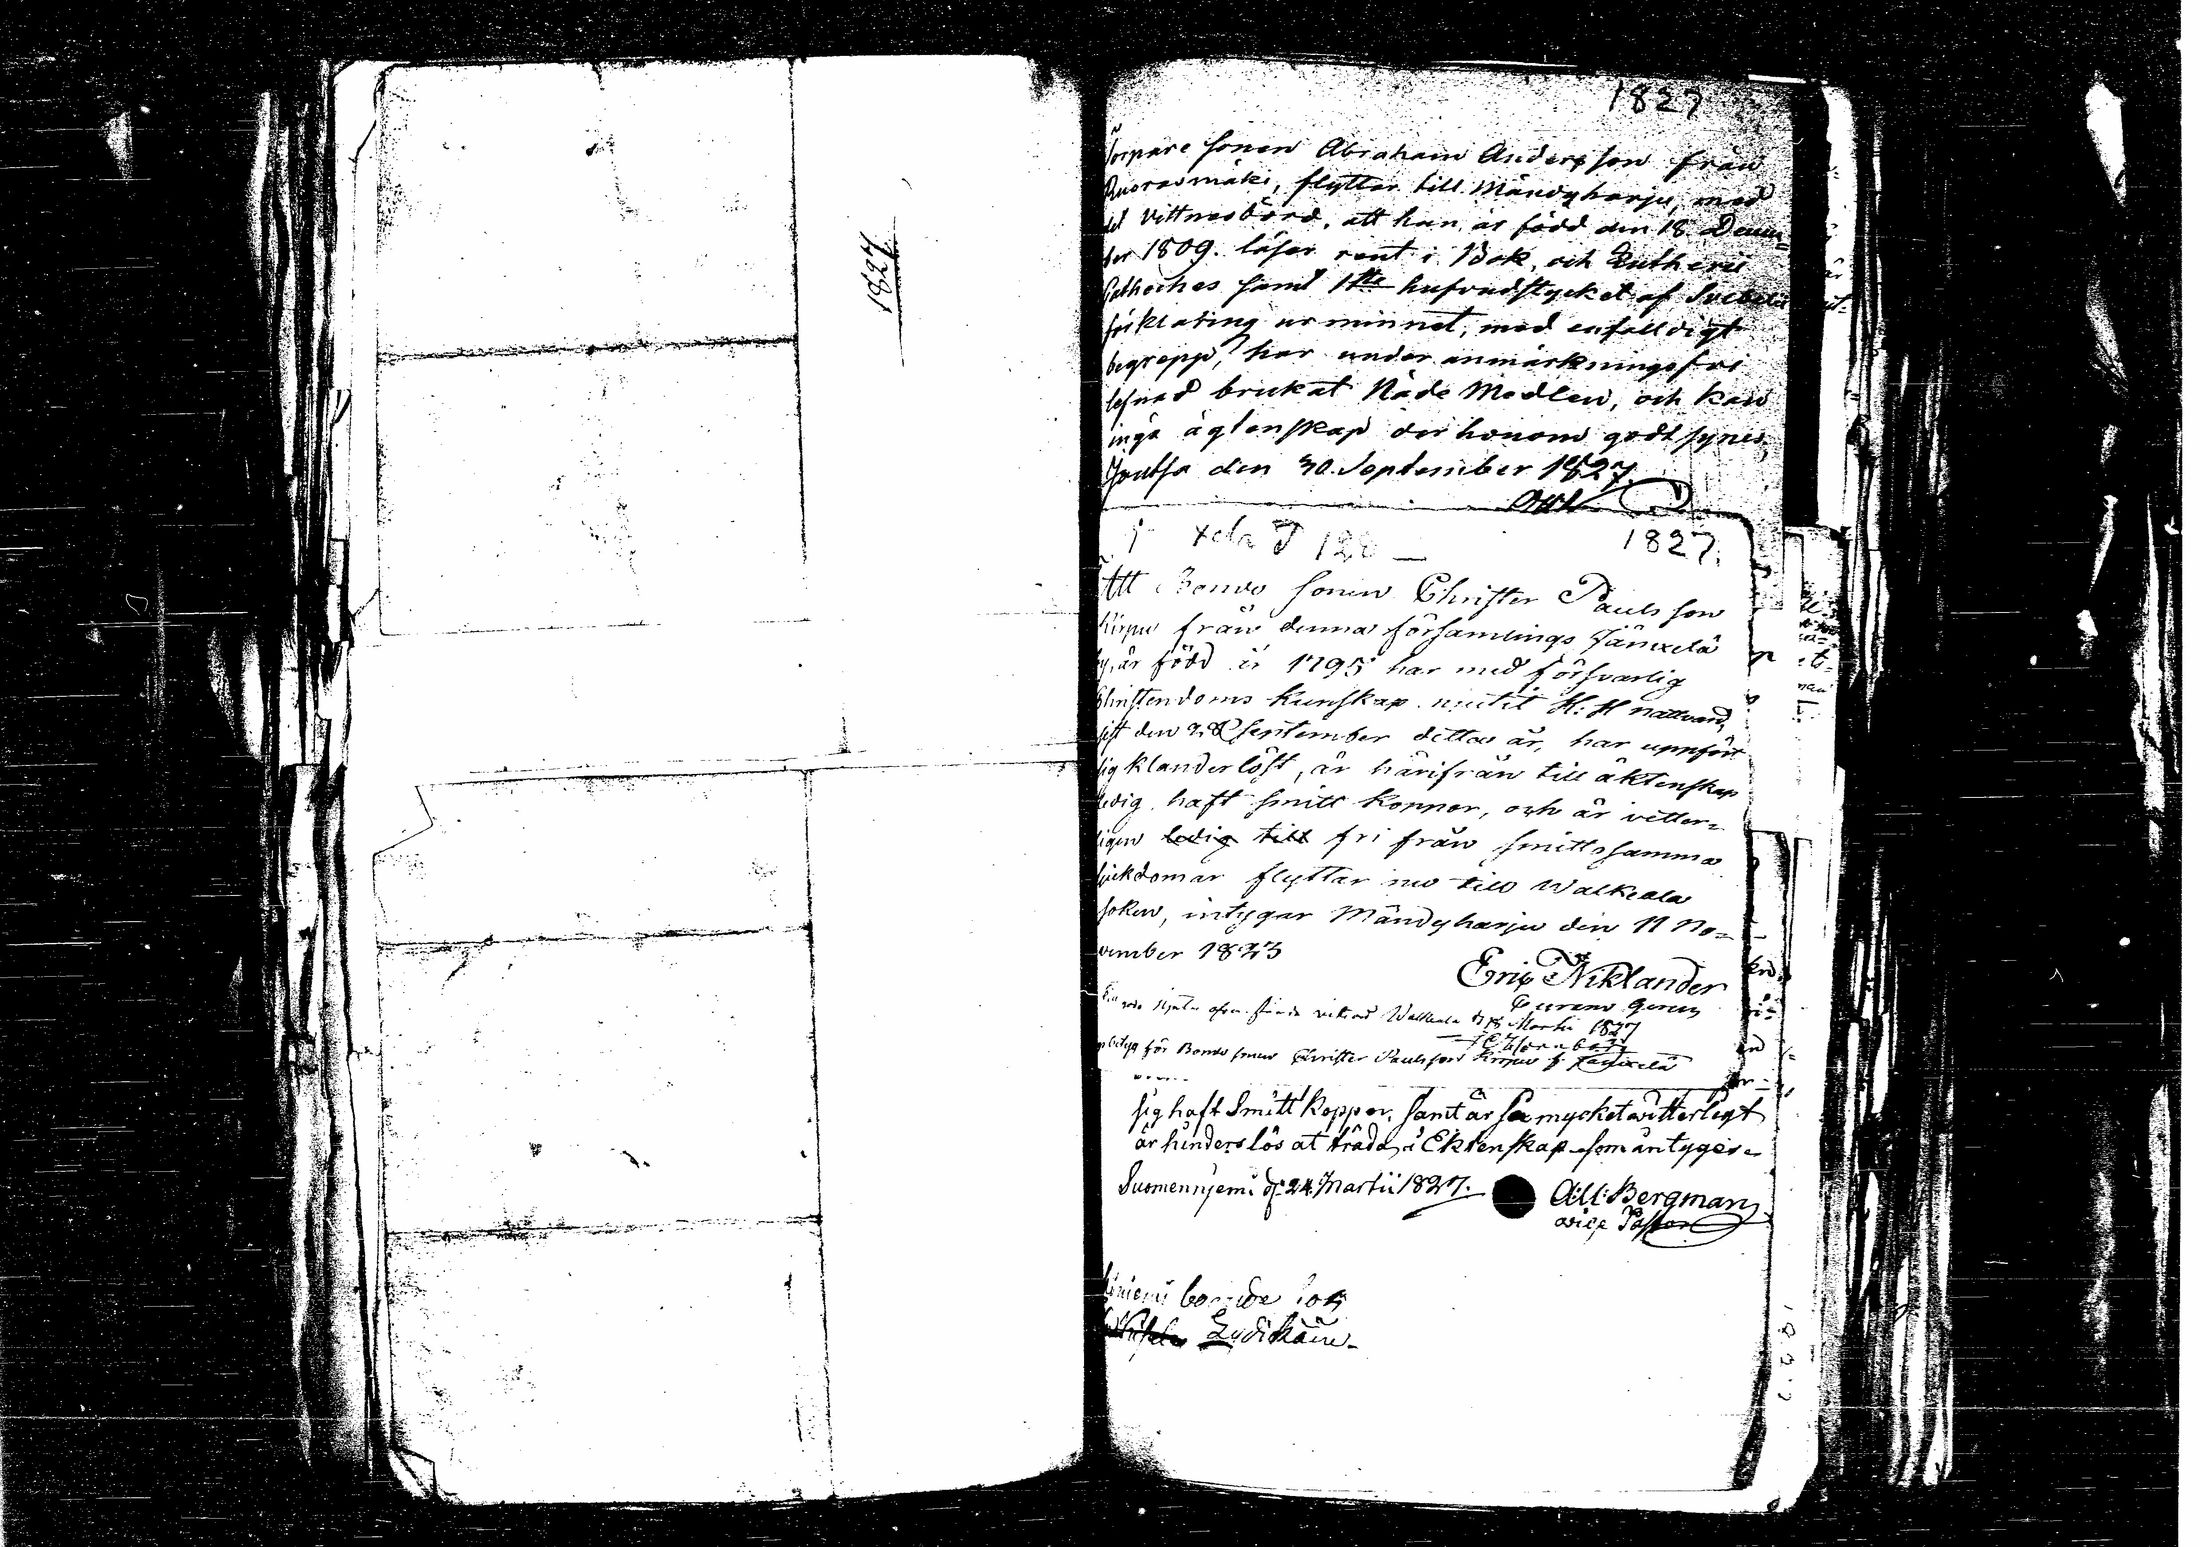 1827
1827
Torpare sonen Abraham Andersson från
Ruorasmäki, flyttar till Mändyharju, med
det Vittnesbörd, att han är född den 18 Decem=
ber 1809. läser rent i Bok, och Lutheri
Catheches samt 1sta hufvudstycket af Svebelii
förklaring ur minnet, med enfalldigt
begrepp, har under anmärkningsfri
lefnad brukat Nåde Medlen, och kan
ingå ägtenskap der honom godt synes,
Joutsa den 30. September 1827.
1827.
Att Bonde sonen Christer Paulsson
Kirpu från denna församlings Jänxelä
by, är född år 1795 har med försvarlig
Christendoms kunskap nutit H: H nattvard,
sist den 28 September detta år, har uppfört
sig klanderlöst, är härifrån till äktenskap
ledig haft Smitt Koppor, och är vitter=
ligen ledig till fri från smittsamma
sjukdomar flyttar nu till Walkeala
soken, intygar Mändyharju den 11 No=
vember 1823
Eric Niklander
Curam Gerens
Walkeala d. 18 Martii 1827
betyg för Bonde sonen Christer Paulsson Kirpu fr. Jänxelä
sig haft Smitt Koppor, samt är så mycket witterligt
är hinderslös at träda i Ektenskap som äntygas
Suomenniemi d. 24. Martii 1827.
A:ll: Bergman
vice Pastor
bonde